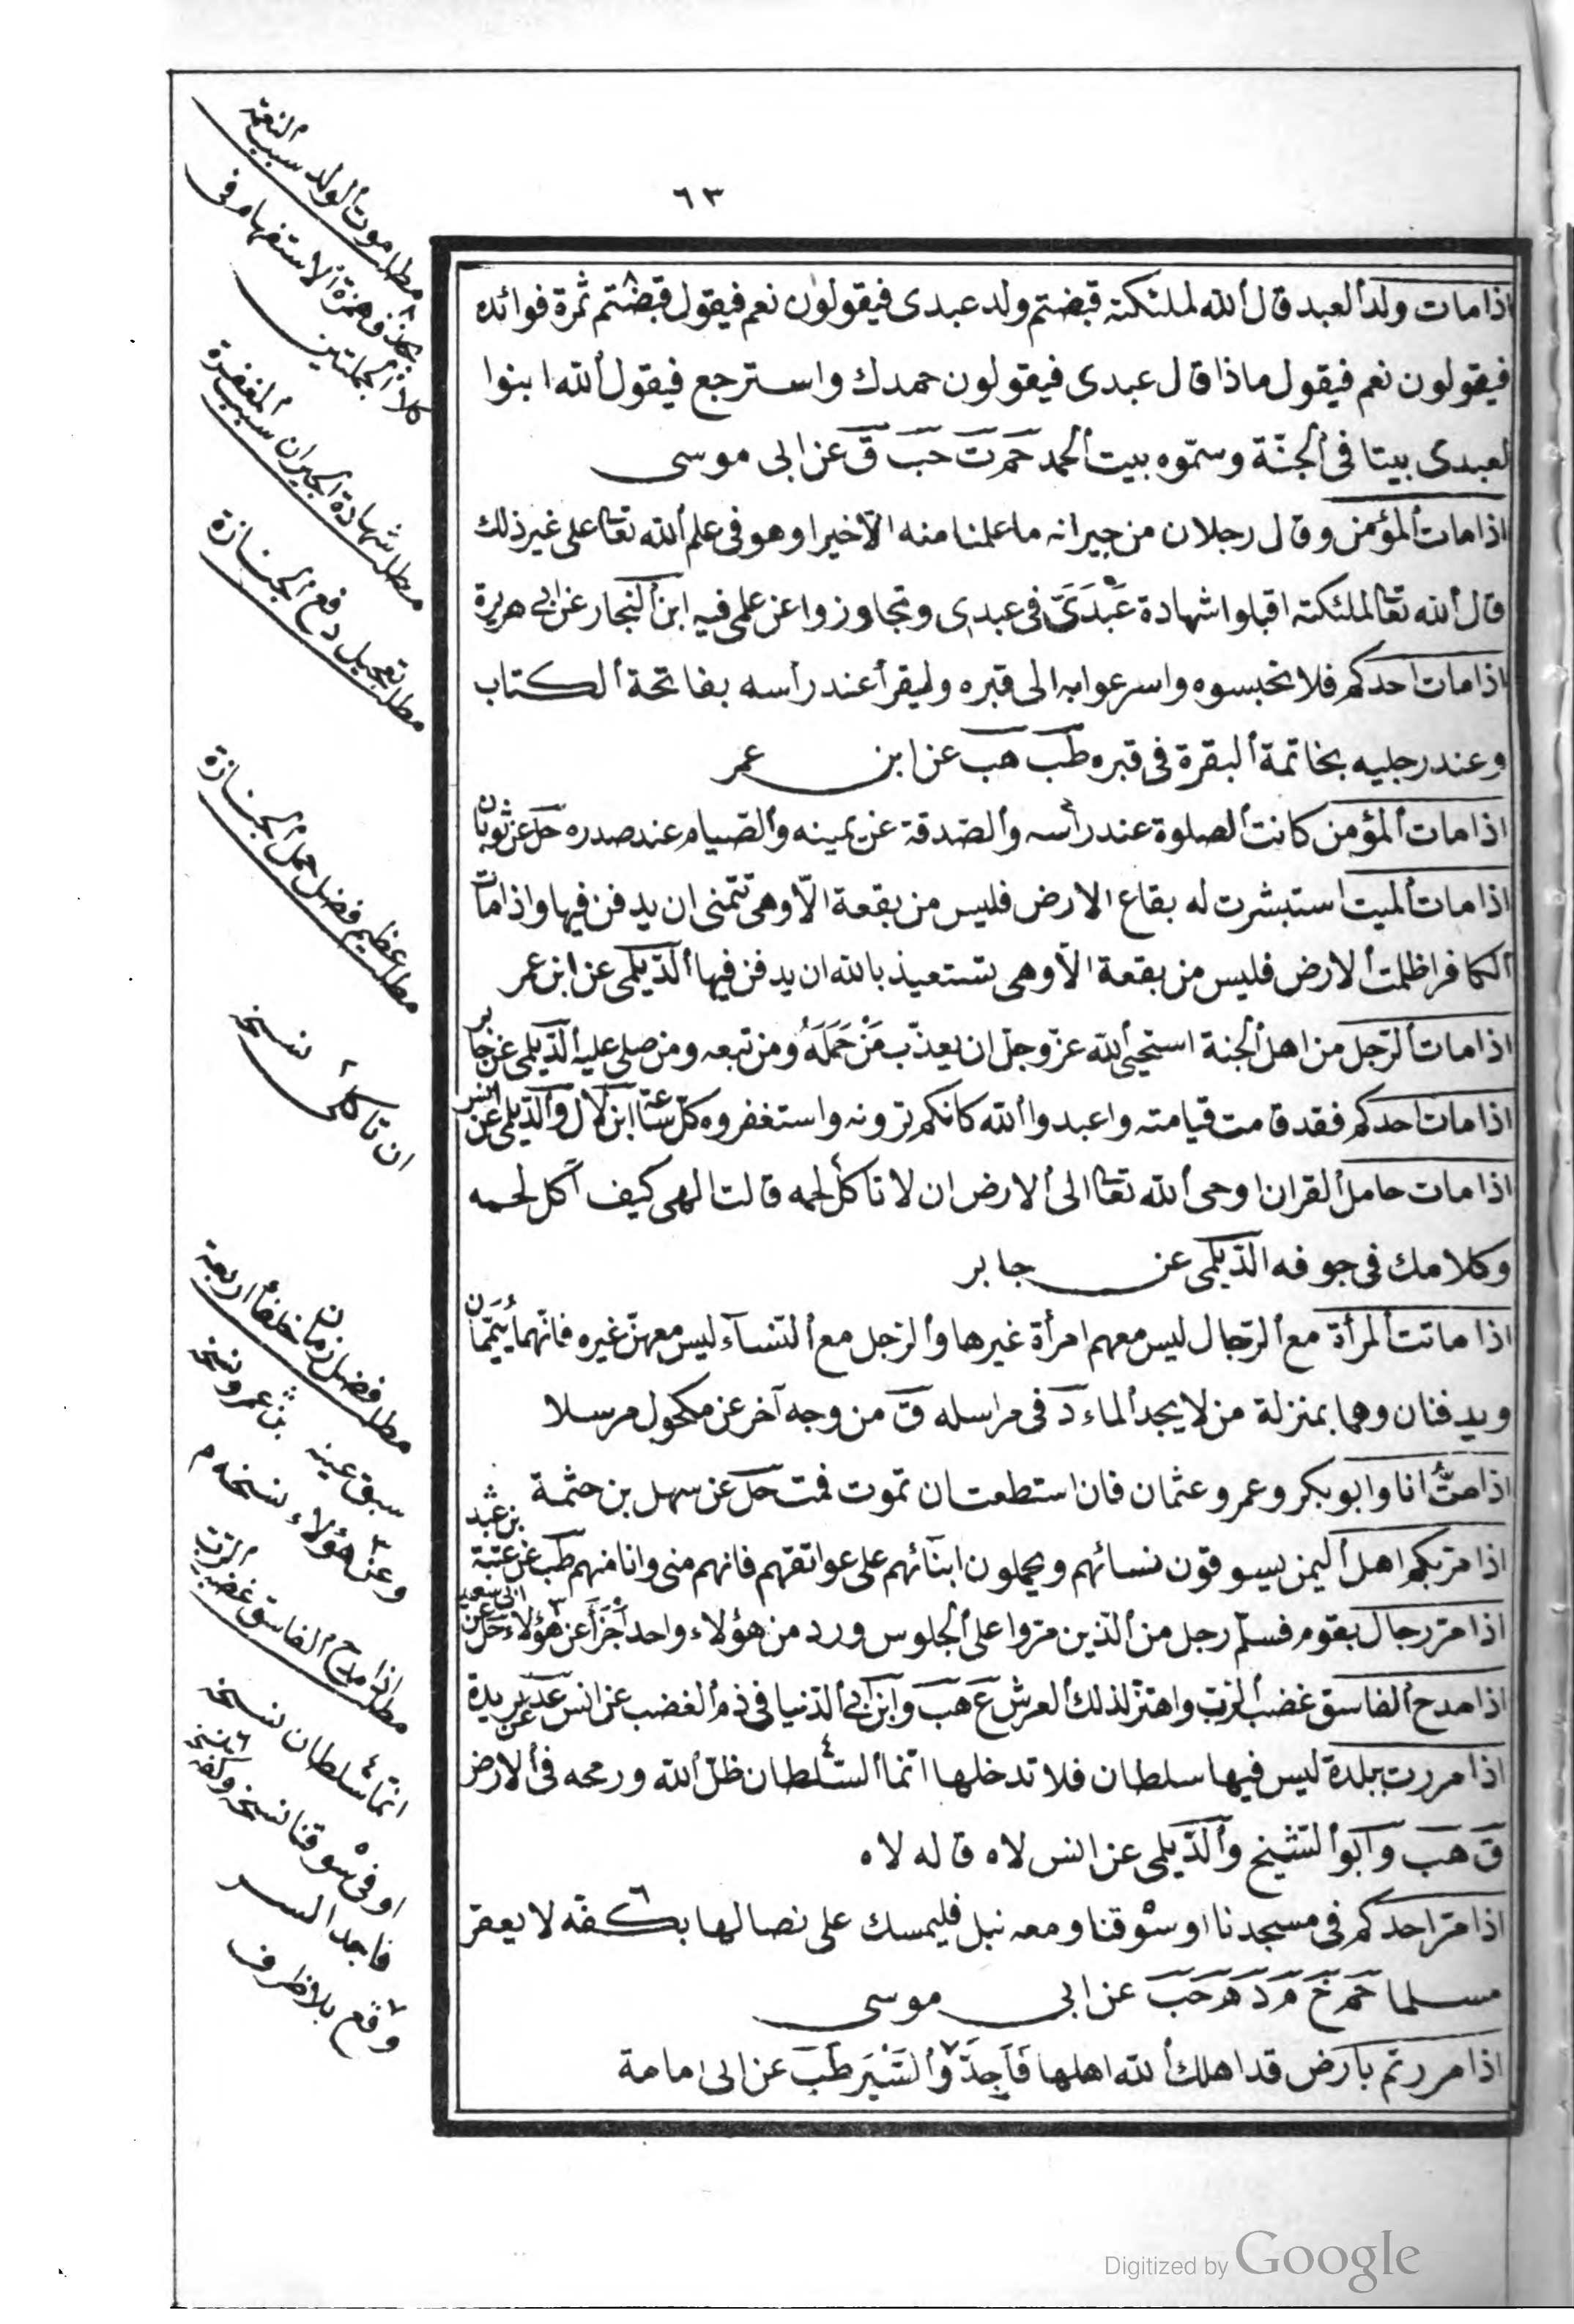 ٦٣
اذا مات ولد العبد قال الله لملئكته قبضتم ولد عبدى فيقولون نعم فيقول قبضتم ثمرة فوائده
فيقولون نعم فيقول ماذا قال عبدى فيقولون حمدك واسترجع فيقول الله ابنوا
لعبدى بيتا فى الجنّة وسمّوه بيت الحمد حم ت حب ق عن ابى موسى
اذا مات المؤمن وقال رجلان من جيرانه ما علمنا منه الّا خيرا وهو فى علم الله تعا على غير ذلك
قال الله تعا لملئكته اقبلوا شهادة عَبْدَىَّ فى عبدى وتجاوزوا عن علمى فيه ابن النجار عن ابى هريرة
اذا مات احدكم فلا تحبسوه واسرعوا به الى قبره وليقرأ عند رأسه بفاتحة الكتاب
وعند رجليه بخاتمة البقرة فى قبره طب هب عن ابن عمر
اذا مات المؤمن كانت الصلوة عند رأسه والصّدقة عن يمينه والصّيام عند صدره حل عن ثوبان
اذا مات الميت استبشرت له بقاع الارض فليس من بقعة الّا وهى تتمنى ان يدفن فيها واذا مات
الكافر اظلمت الارض فليس من بقعة الّا وهى تستعيذ بالله ان يدفن فيها الدّيلمى عن ابن عمر
اذا مات الرّجل من اهل الجنة استحيى الله عزّ وجلّ ان يعذّب مَنْ حَمَلَهُ ومن تبعه ومن صلى عليه الدّيلمى عن جابر
اذا مات احدكم فقد قامت قيامته واعبدوا الله كانكم ترونه واستغفروه كلّ ساعة ابن لال والدّيلمى عن انس
اذا مات حامل القران اوحى الله تعا الى الارض ان لا تأكل لحمه قالت الهى كيف آكل لحمه
وكلامك فى جوفه الدّيلمى عن جابر
اذا ماتت المرأة مع الرّجال ليس معهم امرأة غيرها والرّجل مع النّساء ليس معهنّ غيره فانّهما يُيَمَّمان
ويدفنان وهما بمنزلة من لا يجد الماء د فى مراسله ق من وجه آخر عن مكحول مرسلا
اذا متُّ انا وابو بكر وعمر وعثمان فان استطعت ان تموت فمت حل عن سهل بن حثمة
اذا مرّ بكم اهل اليمن يسوقون نسائهم ويحملون ابنائهم على عواتقهم فانهم منى وانا منهم طب عن عتبة بن عبد
اذا مرّ رجال بقوم فسلّم رجل من الّذين مرّوا على الجلوس ورد من هؤلاء واحد أجزأ عن هؤلاء حل عن ابى سعيد
اذا مدح الفاسق غضب الرّبّ واهتزّ لذلك العرش ع هب وابن ابى الدّنيا فى ذم الغضب عن انس عد عن بريدة
اذا مررت ببلدة ليس فيها سلطان فلا تدخلها انّما السّلطان ظلّ الله ورمحه فى الارض
ق هب وابو الشّيخ والدّيلمى عن انس لاه قاله لاه
اذا مرّ احدكم فى مسجدنا او سوقنا ومعه نبل فليمسك على نصالها بكفّه لا يعقر
مسلما حم خ م د ه حب عن ابى موسى
اذا مررتم بأرض قد اهلك الله اهلها فَاَجِدّوا السَّيْرَ طب عن ابى امامة
مطلب موت الولد سبب النعمة
بحذف همزة الاستفهام فى
كلا الجملتين
مطلب شهادة الجيران سبب المغفرة
مطلب تعجيل دفع الجنازة
مطلب عظيم فضل حمل الجنازة
ان تأكلى نسخه
مطلب فضل زمان خلفا اربعة
سبق عينه بن عمرو نسخه
وعن هؤلاء نسخه م
مطلب اذا مدح الفاسق غضب الرب
انما سلطان نسخه
او فى سوقنا نسخه وكفه نسخه
فاجدا السر
وقع بلا ظرف
Digitized by Google